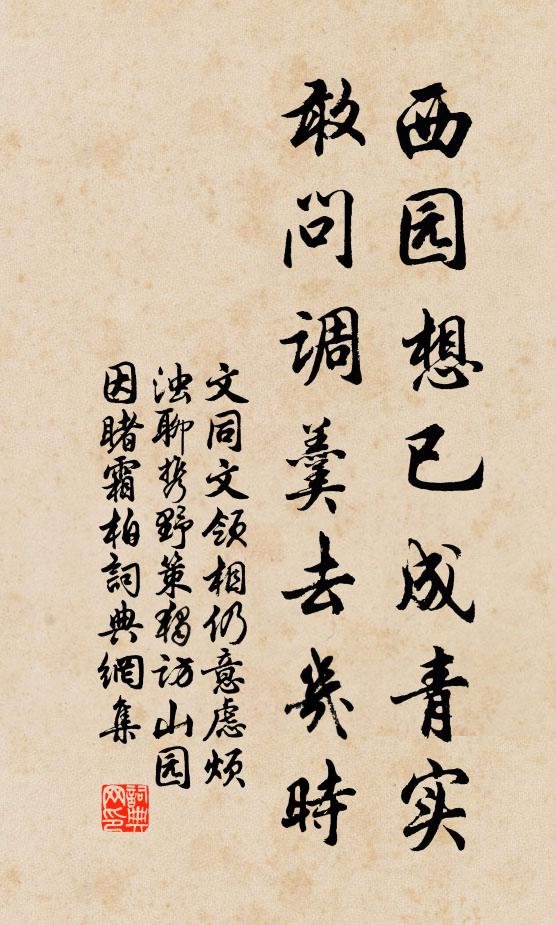 西园想已成青实
敢问调羹去几時
文同文领相仍意虑烦
浊聊携野策独访山园
因睹霜柏詞典網集
詞典网印